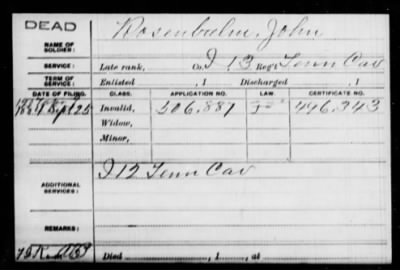 DEAD
NAME OF SOLDIER: Rosenbalm, John
SERVICE: Late rank, Co. I 13 Reg't Tenn Cav
TERM OF SERVICE: Enlisted , 1 Discharged , 1
DATE OF FILING. CLASS. APPLICATION NO. LAW. CERTIFICATE NO.
Sept 25 Invalid, 506.887 446.343
Widow,
Minor,
ADDITIONAL SERVICES: I 12 Tenn Cav
REMARKS:
Died , 1 , at